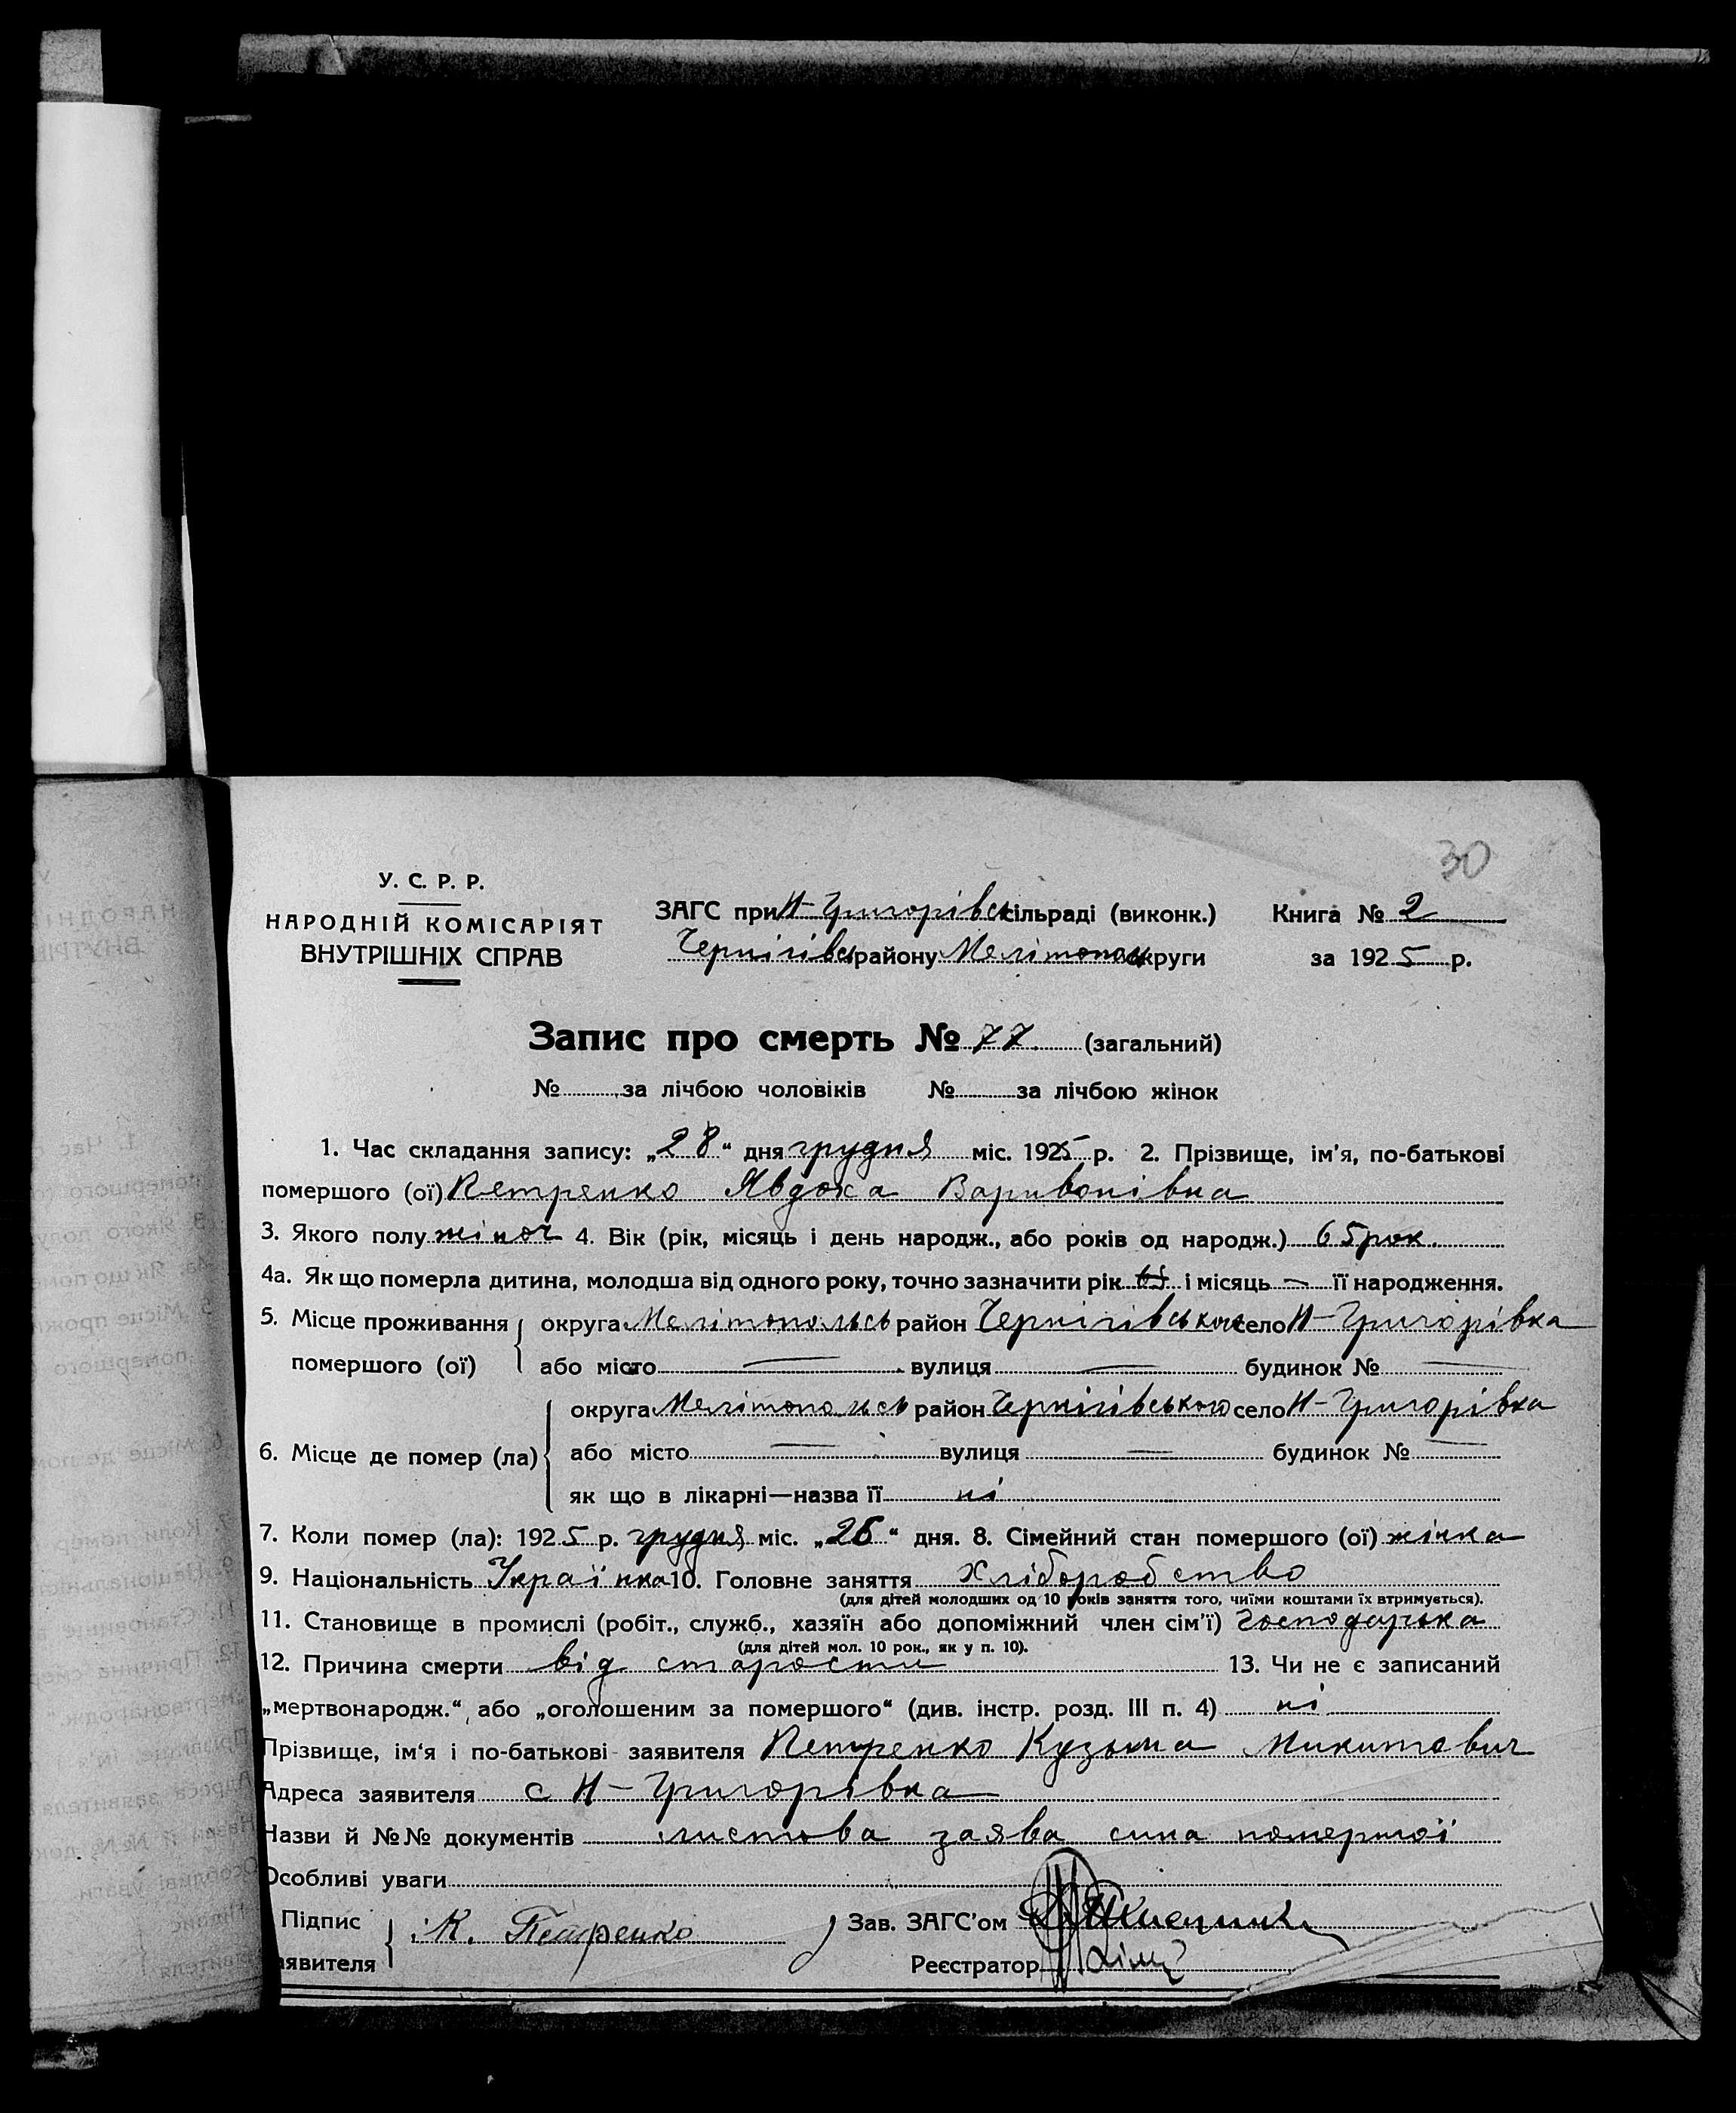 30
У. С. Р. Р.
НАРОДНІЙ КОМІСАРІЯТ
ВНУТРІШНІХ СПРАВ
ЗАГС при Н-Григорівськ сільраді (виконк.) Книга № 2
Чернігівсь району Мелітопольськ округи за 1925 р.
Запис про смерть № 77 (загальний)
№ за лічбою чоловіків № за лічбою жінок
1. Час складання запису: „28“ дня грудня міс. 1925 р. 2. Прізвище, ім'я, по-батькові
помершого (ої) Петренко Явдоха Варивонівна
3. Якого полу жіноч 4. Вік (рік, місяць і день народж., або років од народж.) 65 рок.
4а. Як що померла дитина, молодша від одного року, точно зазначити рік 65 і місяць — її народження.
5. Місце проживання округа Мелітопольсь район Чернігівського село Н-Григорівка
помершого (ої) або місто — вулиця — будинок № —
округа Мелітопольсь район Чернігівського село Н-Григорівка
6. Місце де помер (ла) або місто — вулиця — будинок № —
як що в лікарні—назва її ні
7. Коли помер (ла): 1925 р. грудня міс. „26“ дня. 8. Сімейний стан помершого (ої) жінка
9. Національність Українка 10. Головне заняття Хліборобство
(для дітей молодших од 10 років заняття того, чиїми коштами їх втримується).
11. Становище в промислі (робіт., служб., хазяїн або допоміжний член сім'ї) Господарька
(для дітей мол. 10 рок., як у п. 10).
12. Причина смерти від старости 13. Чи не є записаний
„мертвонародж.“, або „оголошеним за помершого“ (див. інстр. розд. III п. 4) ні
Прізвище, ім'я і по-батькові заявителя Петренко Кузьма Микитович
Адреса заявителя с Н-Григорівка
Назви й №№ документів листова заява сина помершої
Особливі уваги
Підпис К. Петренко Зав. ЗАГС'ом
аявителя Реєстратор